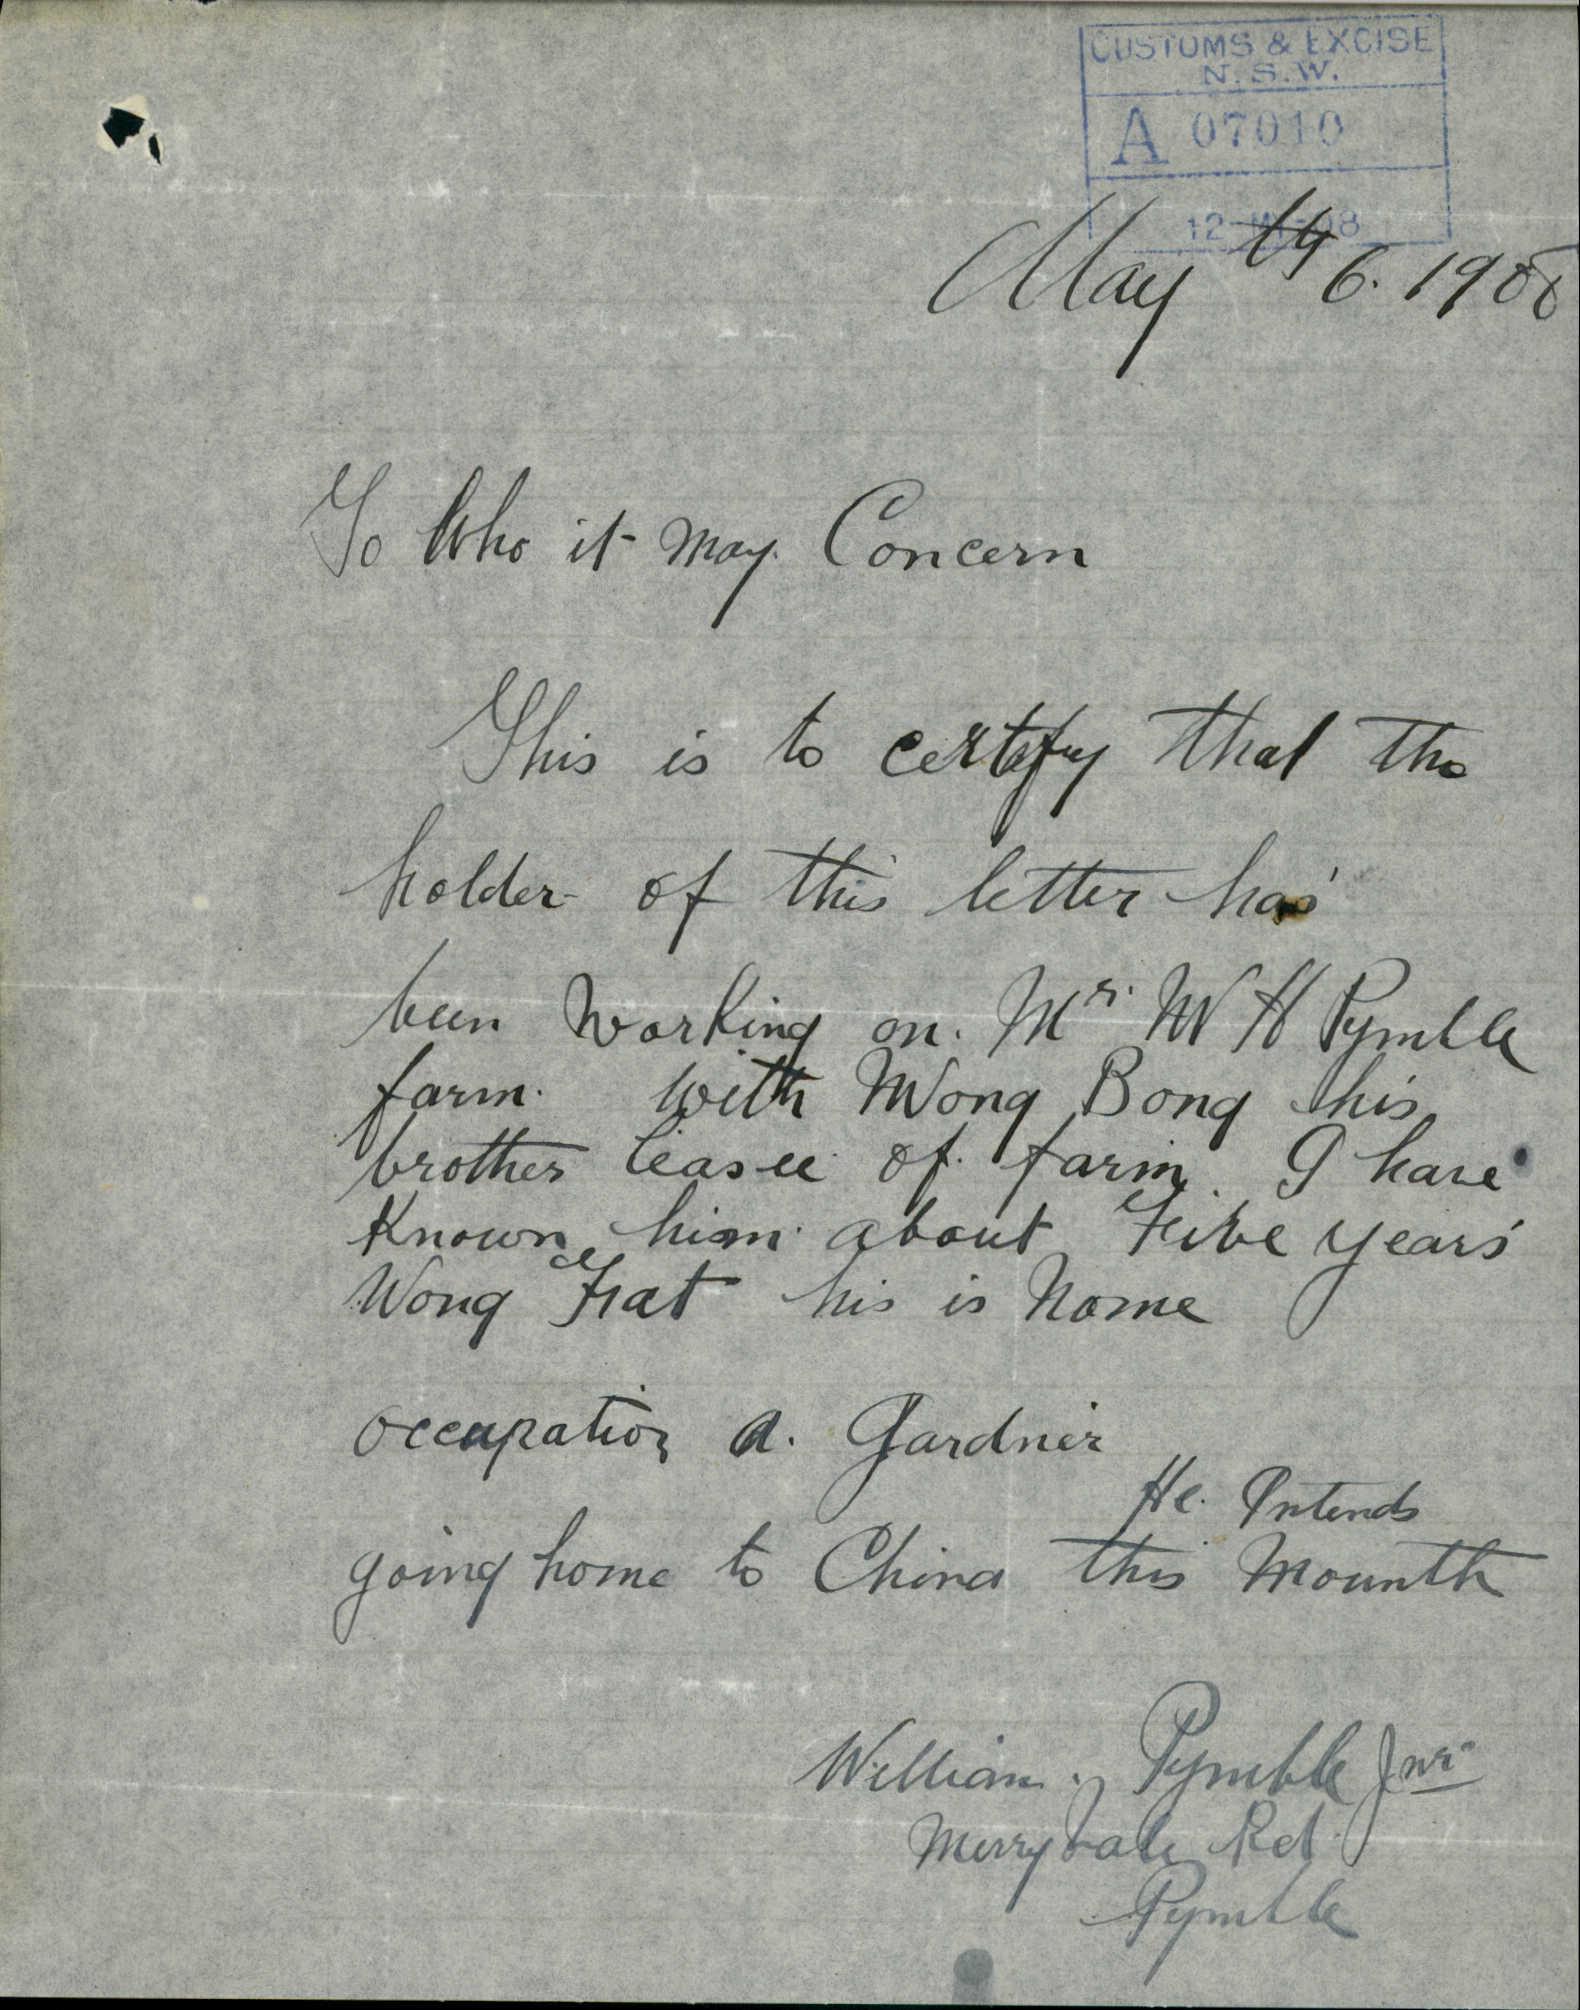 CUSTOMS & EXCISE
N.S.W.
A 07010
May th 6. 1908
To Who it may Concern
This is to certify that the
holder of this letter has
been working on. Mr. W H Pymble
farm. with Wong Bong his
brother leasee of farm. I have
Known him about Five years
Wong Fat his is Name
occupation a. Gardner
He. Intends
going home to China this Mounth
William. Pymble Jnr
Merryvale Rd.
Pymble